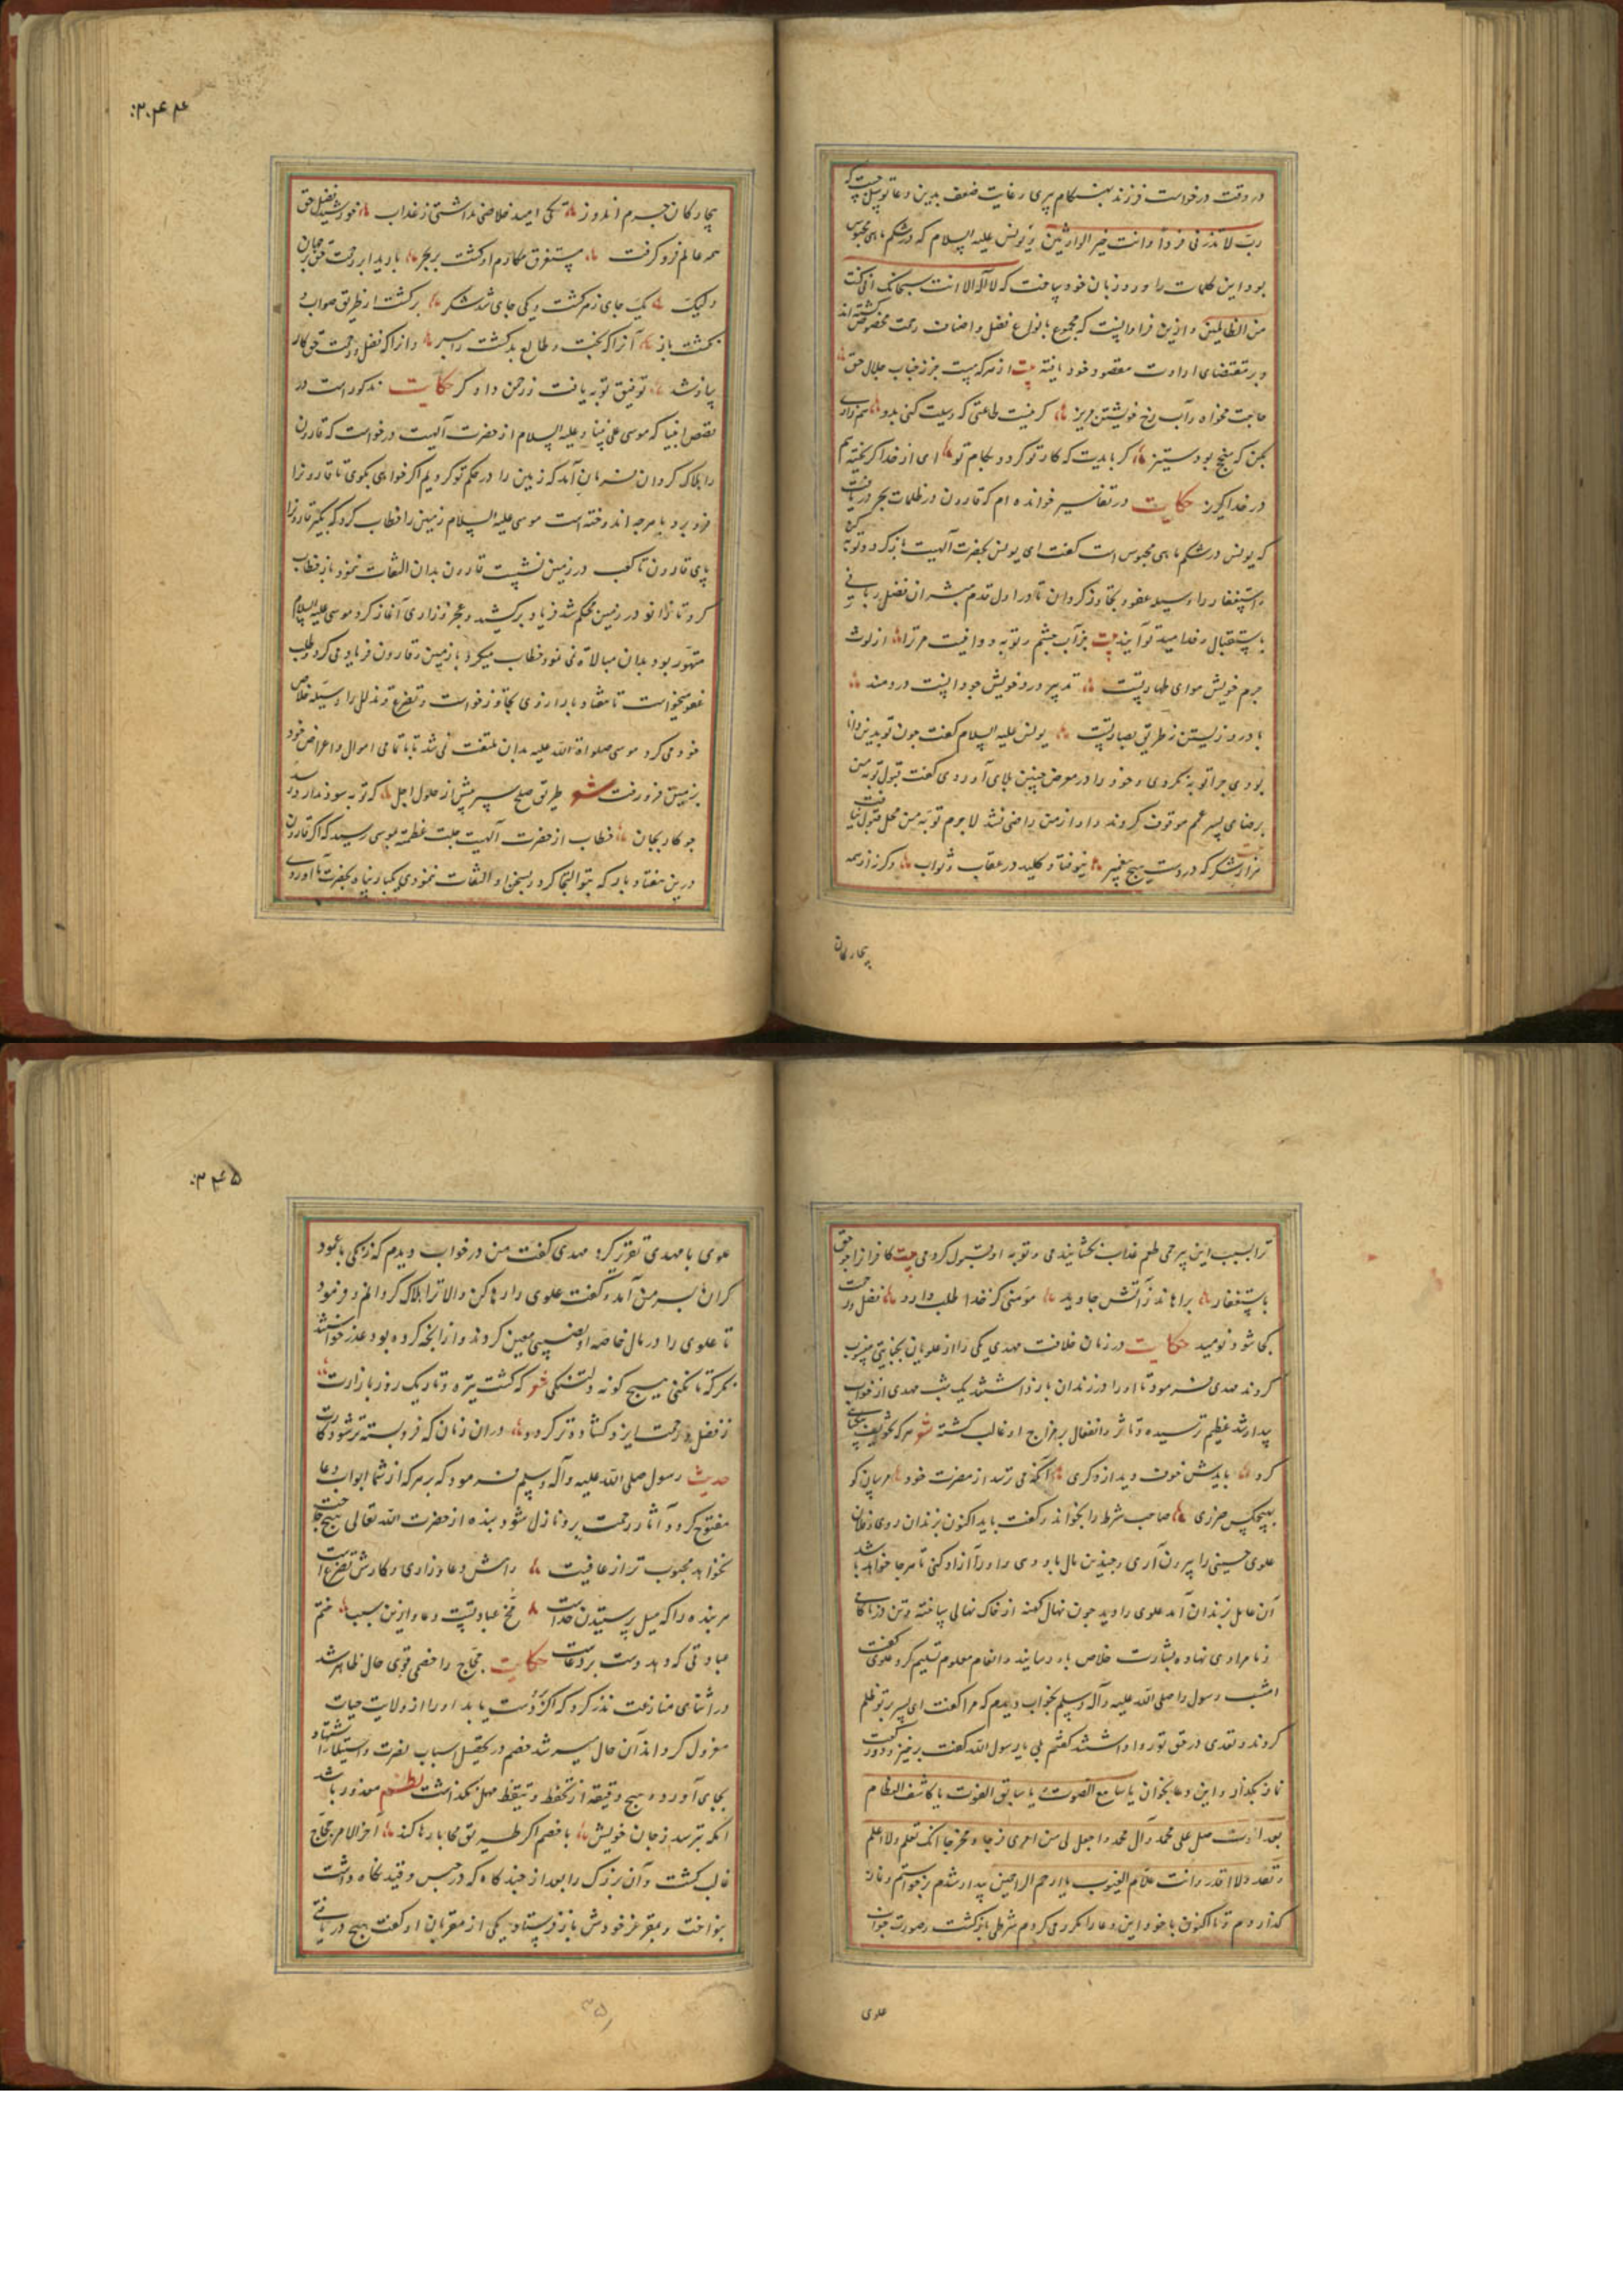 در وقت درخواست فرزند بهنگام پیری و غایت ضعف بدین دعا توسل جست که
رب لا تذرنی فردا وانت خیر الوارثین و یونس علیه السلام که در شکم ماهی محبوس
بود این کلمات را ورد زبان خود ساخت که لا اله الا انت سبحانک انی کنت
من الظالمین و ازین فراوانست که مجموع بانواع فضل و اصناف رحمت مخصوص گشته اند
و بر مقتضای ارادت مقصود خود یافته بیت از هر که هست جز ز جناب جلال حق
حاجت مخواه و آب رخ خویشتن مریز گر نیست طاعتی که وسیلت کنی بدو
در خدا گریز حکایت در تفاسیر خوانده ام که قارون در ظلمات بحر دریافت
که یونس در شکم ماهی محبوس است گفت ای یونس بحضرت الهیت بازگرد و توبه
و استغفار را وسیله عفو و تجاوز گردان تا در اول قدم مبشران فضل ربانی
باستقبال و خدا مید تو آیند بیت جز آب چشم و توبه و وانیت مر ترا از لوث
جرم خویش هوای طهارتست تدبیر درد خویش چو دانست دردمند
با درد زیستن نه طریق بصارتست یونس علیه السلام گفت چون تو بدین دانا
بودی چرا توبه نکردی و خود را در معرض چنین بلای آوردی گفت قبول توبه من
برضای پسر عم موقوف کردند و او از من راضی نشد لاجرم توبه من محل قبول نیافت
هزار شکر که در دست هیچ پیغمبر نیوفتاد کلید در عقاب و ثواب وگر نه از همه
بیچارگان
۳۰۴۴
بیچارگان جرم اندوز یکی امید خلاصی نداشتی ز عذاب خورشید فضل حق
همه عالم فرو گرفت مستغرق مکارم او گشت بر و بحر بارید ابر رحمت حق بر جهان
ولیک یک جای زهر گشت و یکی جای شد شکر برگشت از طریق صواب و
بگشت باز آنرا که بخت و طالع بد گشت راهبر وانرا که فضل و رحمت حق کار
ساز شد توفیق توبه یافت ز رحمن دادگر حکایت مذکور است در
قصص انبیا که موسی علی نبینا و علیه السلام از حضرت الهیت درخواست که قارون
را هلاک گردان فرمان آمد که زمین را در حکم تو کردیم اگر خواهی بگوی تا قارون را
فرو برد با هرچه اندوخته است موسی علیه السلام زمین را خطاب کرد که بگیر قارون را
پای قارون تا کعب در زمین نشست قارون بدان التفات ننمود باز خطاب
کرد تا زانو در زمین محکم شد فریاد برکشید و عجز و زاری آغاز کرد موسی علیه السلام
متهور بود بدان مبالاة نمی نمود خطاب میکرد با زمین و قارون فریاد می کرد و طلب
عفو میخواست تا هفتاد بار از وی تجاوز خواست و تضرع و تذلل را وسیله خلاص
خود می کرد موسی صلواة الله علیه بدان ملتفت نمی شد تا با تمامی اموال و اعراض خود
بزمین فرو رفت شعر طریق صلح سپر پیش از حلول اجل که توبه سود ندارد
چو کار بجان خطاب از حضرت الهیت جلت عظمته بموسی رسید که اگر قارون
درین هفتاد بار که بتو التجا کرد و بسخن او التفات ننمودی یکبار پناه بحضرت ما آوردی
ترا بسبب این بیرحمی طعم عذاب بچشانیدمی و توبه او قبول کردمی بیت کافر از حق
باستغفار براهاند ز آتش جاوید مؤمنی کز خدا طلب دارد فضل و رحمت
کجا شود نومید حکایت در زمان خلافت مهدی یکی را از علویان بجنایتی منسوب
کردند مهدی فرمود تا او را در زندان باز داشتند یک شب مهدی از خواب
بیدار شد عظیم ترسیده و تاثر و انفعال بر مزاج او غالب گشته شعر هر که تخویف بیگناهی
کرد بایدش خوف دید از دگری آنکه می ترسد از مضرت خود مرسان گو
بهیچکس ضرری صاحب شرط را بخواند و گفت باید اکنون بزندان روی و فلان
علوی حسینی را بیرون آری و چندین مال بوی دهی و او را آزاد کنی تا هر جا خواهد باشد
آن عامل بزندان آمد علوی را دید چون نهال کهنه از خاک نهالی ساخته و تن در ناکامی
و نامرادی نهاده بشارت خلاص باو رسانید و انعام معلوم تسلیم کرد علوی گفت
امشب رسول را صلی الله علیه و آله وسلم بخواب دیدم که مرا گفت ای پسر بر تو ظلم
کردند و تعدی در حق تو روا داشتند گفتم بلی یا رسول الله گفت برخیز و دو رکعت
نماز بگذار و این دعا بخوان یا سامع الصوت یا سابق الفوت یا کاشف العظام
بعد الموت صل علی محمد و آل محمد واجعل لی من امری فرجا و مخرجا انک تعلم ولا اعلم
وتقدر ولا اقدر وانت علام الغیوب یا ارحم الراحمین بیدار شدم برخواستم و نماز
گذاردم و تا اکنون با خود این دعا را مکرر می کردم شرطی بازگشت و صورت جواب
علوی
۳۴۵
علوی با مهدی تقریر کرد مهدی گفت من در خواب دیدم که زنگی با عمود
گران بسر من آمد و گفت علوی را رها کن والا ترا هلاک گردانم و فرمود
تا علوی را در مال خاصه او نصیبی معین کردند و از آنچه کرده بود عذر خواستند
هر که تا نکنی هیچ گونه دلتنگی شعر که گشت تیره و تاریک روز بازارت
ز فضل و رحمت ایزد گشاده تر گردد در آن زمان که فرو بسته تر شود کارت
حدیث رسول صلی الله علیه و آله وسلم فرمود که بر هر که از شما ابواب دعا
مفتوح گردد آثار رحمت برو نازل شود و بنده از حضرت الله تعالی هیچ حاجت
نخواهد محبوب تر از عافیت دانش دعا و زاری و کارش تضرعست
هر بنده را که میل پرستیدن خداست مخ عبادتست دعا و ازین سبب ختم
عبادتی که دهد دست بر دعاست حکایت حجاج را خصمی قوی حال ظاهر شد
در اثنای منازعت نذر کرد که اگر دست یابد او را از ولایت حیات
معزول گرداند آن حال میسر شد خصم در تحصیل اسباب نصرت و استیلا
بجای آورده هیچ دقیقه از تحفظ و تیقظ مهمل نگذاشت نظم معذور باشد
آنکه بترسد ز جان خویش با خصم اگر طریق محابا رها کند آخر الامر حجاج
غالب گشت و آن بزرگ را بعد از چند گاه که در حبس و قید نگاه داشت
بنواخت و بمقر عز خودش باز فرستاد یکی از مقربان او گفت هیچ دریافتی
۳۵